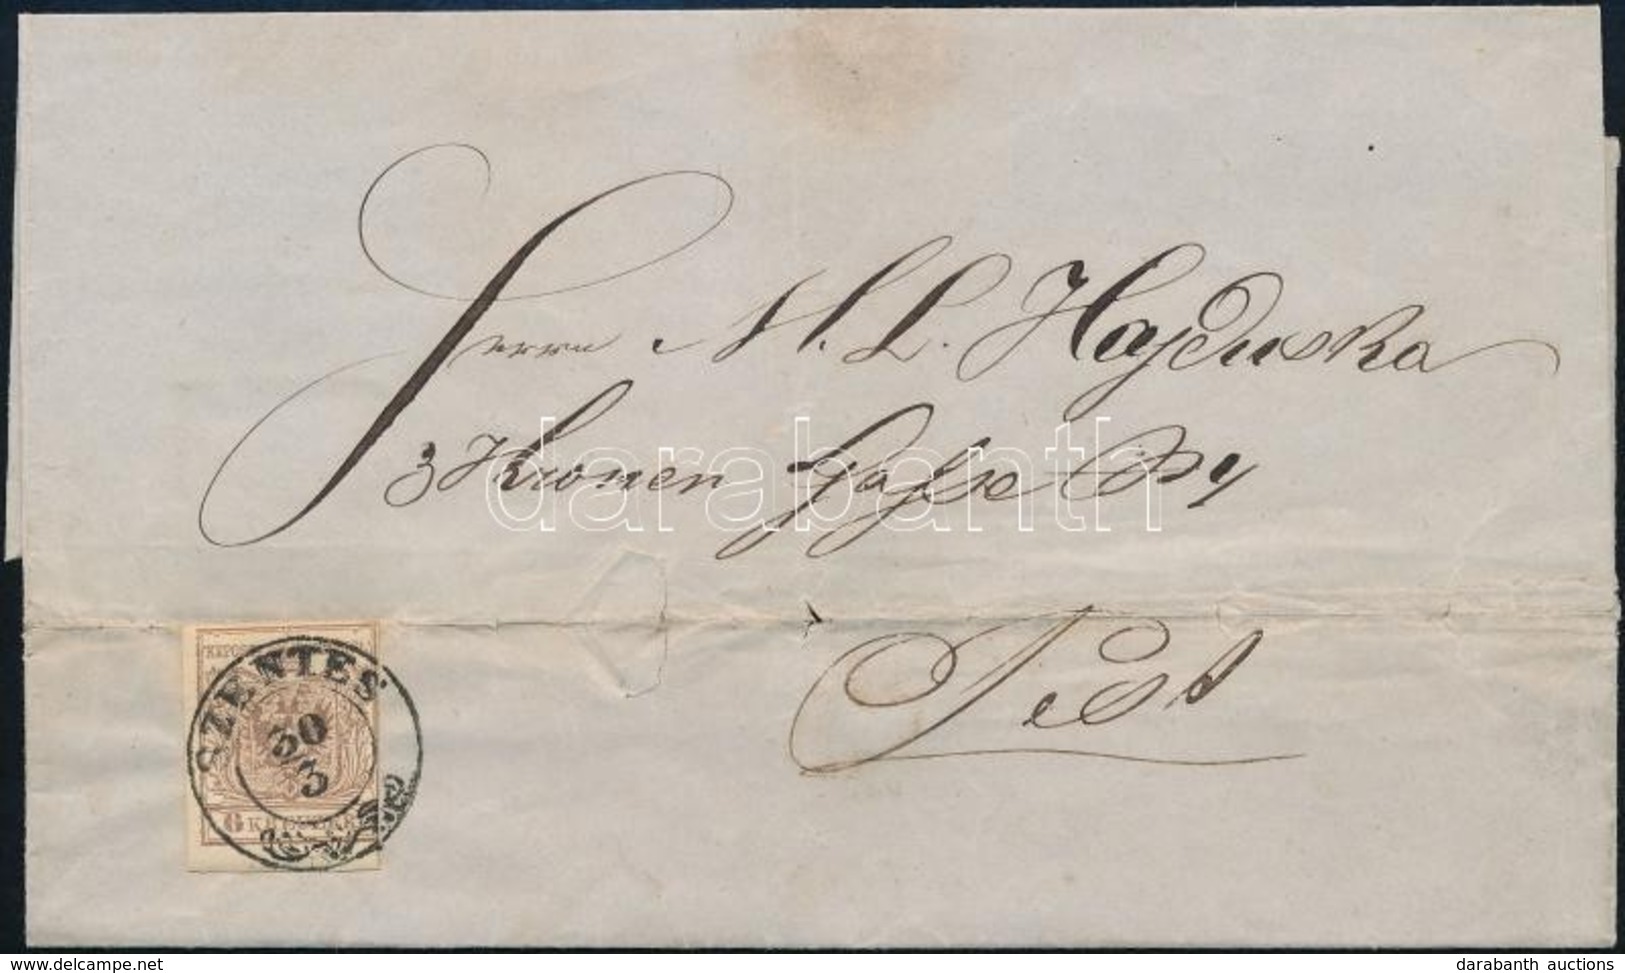 Herrn M. L. Hajduska
3 Kronen Gasse
Pest
SZENTES
30
3
6 KREUZER
darabanth
delcampe.net
darabanth auctions